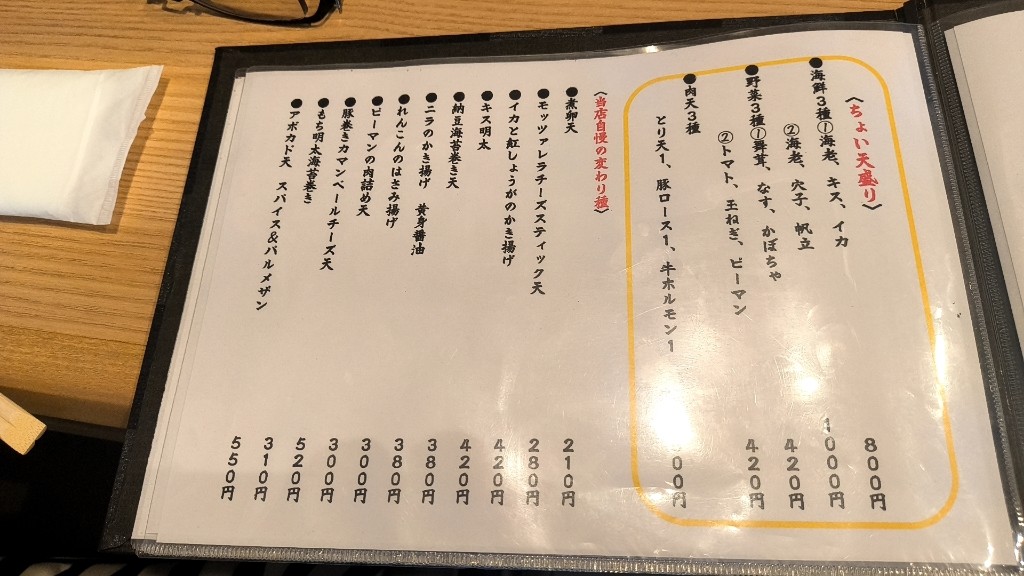 〈ちょい天盛り〉
●海鮮3種①海老、キス、イカ 800円
②海老、穴子、帆立 1000円
●野菜3種①舞茸、なす、かぼちゃ 420円
②トマト、玉ねぎ、ピーマン 420円
●肉天3種 とり天1、豚ロース1、牛ホルモン1
〈当店自慢の変わり種〉
●煮卵天 210円
●モッツァレラチーズスティック天 280円
●イカと紅しょうがのかき揚げ 420円
●キス明太 420円
●納豆海苔巻き天 380円
●ニラのかき揚げ 黄身醤油 380円
●れんこんのはさみ揚げ 300円
●ピーマンの肉詰め天 300円
●豚巻きカマンベールチーズ天 520円
●もち明太海苔巻き 310円
●アボカド天 スパイス&パルメザン 550円